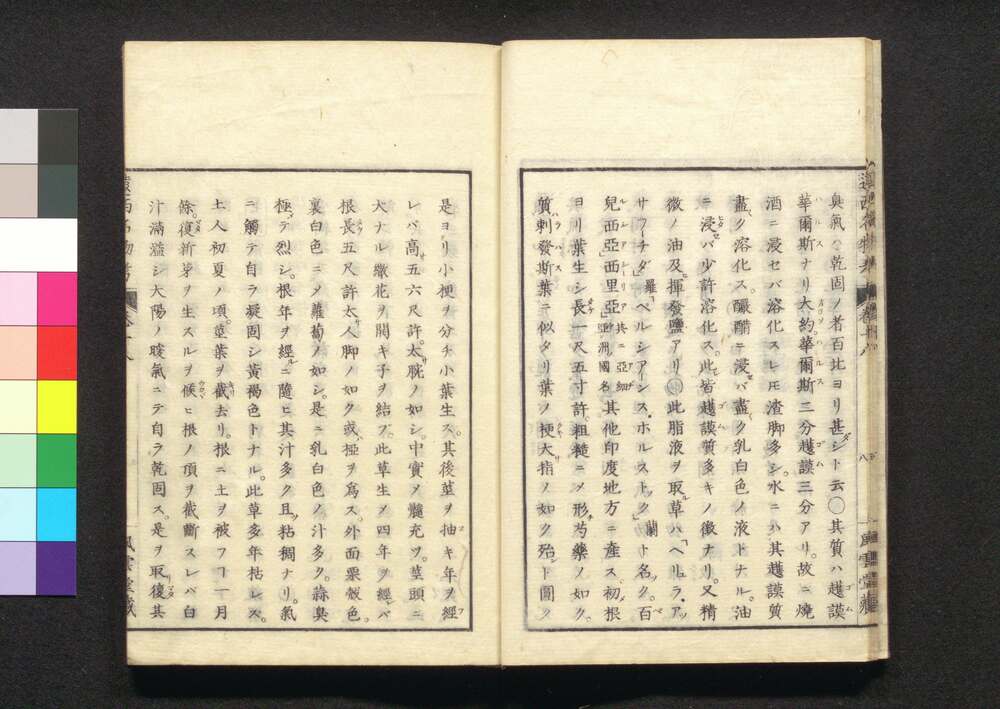 臭氣ハ乾固ノ者百比ヨリ甚シト云〇其質ハ越謨
華爾斯ナリ大約華爾斯三分越謨三分アリ。故ニ燒
酒ニ浸セバ溶化スレ𪜈渣脚多シ。水ニハ其越謨質
盡ク溶化ス。釅醋ニ浸バ盡ク乳白色ノ液トナル。油
ニ浸バ少許溶化ス。此皆越謨質多キノ徵ナリ。又精
微ノ油及ビ揮發鹽アリ〇此脂液ヲ取草ハ「ヘリュラ・アッ
サフーチダ」羅「ペルシアーンス・ホルストック」蘭ト名ク。百
兒西亞」西里亞共ニ亞細亞洲國名其他印度地方ニ產ス。初根
ヨリ葉生シ長一尺五寸許粗糙ニメ形芍藥ノ如ク。
質刺發斯葉ニ似タリ葉ノ梗大指ノ如ク殆ント圓ク
是ヨリ小梗ヲ分チ小葉生ス。其後莖ヲ抽キ年ヲ經
レバ高サ五六尺許。太サ腕ノ如シ。中實メ髓充ツ。莖頭ニ
大ナル繖花ヲ開キ子ヲ結ブ。此草生メ四年ヲ經レバ
根長五尺許太サ人脚ノ如ク或ハ椏ヲ爲ス。外面栗殼色
裏白色ニメ蘿蔔ノ如シ。是ニ乳白色ノ汁多ク。蒜臭
極テ烈シ。根年ヲ經ルニ隨ヒ其汁多ク且ツ粘稠ナリ。氣
ニ觸テ自ラ凝固シ黃褐色トナル。此草多年枯レス。
土人初夏ノ頃。莖葉ヲ截去リ。根ニ土ヲ被フヿ一月
條復新芽ヲ生スルヲ候ヒ根ノ頂ヲ截斷スレバ白
汁滿溢シ太陽ノ暖氣ニテ自ラ乾固ス。是ヲ取復其
風雲堂藏